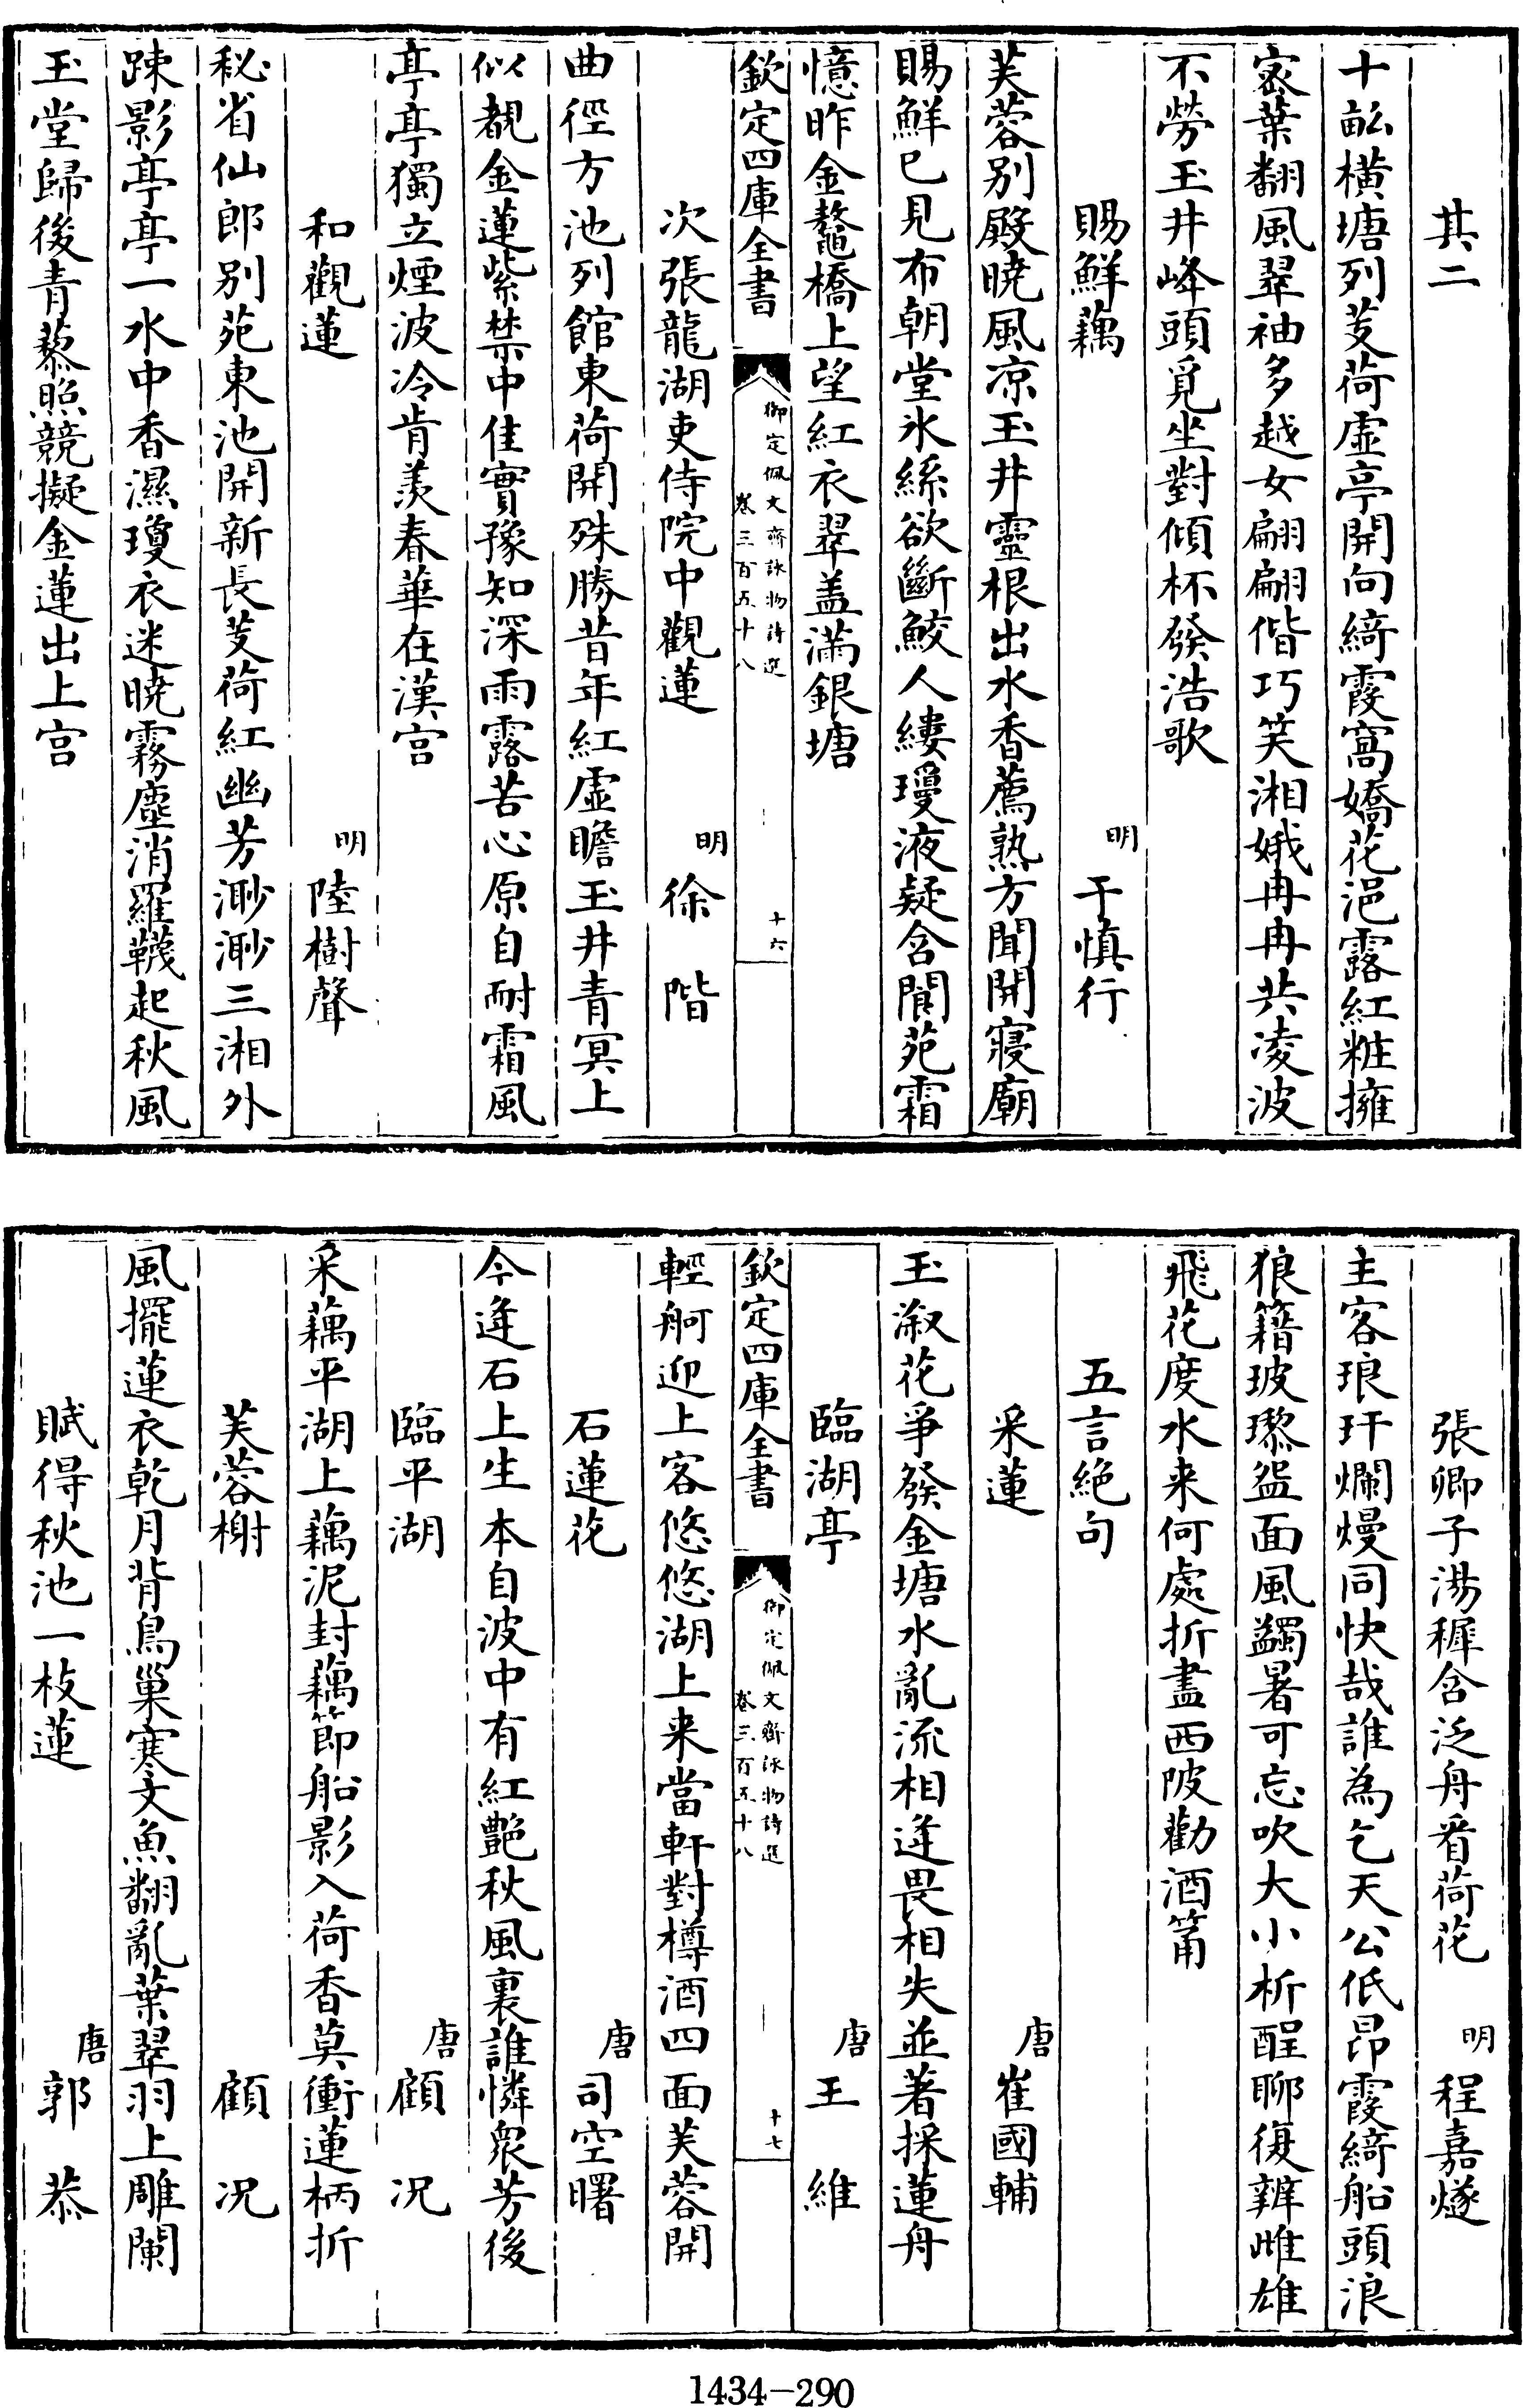 其二
十畝橫塘列芰荷虛亭開向綺霞窩嬌花浥露紅粧擁
宻葉翻風翠袖多越女翩翩偕巧笑湘娥冉冉共凌波
不勞玉井峰頭覓坐對傾杯發浩歌
賜鮮藕 明 于慎行
芙蓉别殿曉風凉玉井靈根出水香薦熟方聞開寢廟
賜鮮已見布朝堂氷絲欲斷鮫人縷瓊液疑含閬苑霜
憶昨金鼇橋上望紅衣翠盖滿銀塘
欽定四庫全書 御定佩文齋詠物詩選 卷三百五十八 十六
次張龍湖吏侍院中觀蓮 明 徐階
曲徑方池列館東荷開殊勝昔年紅虛瞻玉井青冥上
似覩金蓮紫禁中佳實豫知深雨露苦心原自耐霜風
亭亭獨立煙波冷肯羨春華在漢宫
和觀蓮 明 陸樹聲
秘省仙郎别苑東池開新長芰荷紅幽芳渺渺三湘外
踈影亭亭一水中香濕瓊衣迷曉霧塵消羅韈起秋風
玉堂歸後青藜照競擬金蓮出上宫
張卿子湯穉含泛舟看荷花 明 程嘉燧
主客琅玕爛熳同快哉誰為乞天公低昂霞綺船頭浪
狼籍玻瓈盌面風蠲暑可忘吹大小析酲聊復辨雌雄
飛花度水来何處折盡西陂勸酒筩
五言絶句
采蓮 唐 崔國輔
玉溆花爭發金塘水亂流相逢畏相失並著採蓮舟
臨湖亭 唐 王維
欽定四庫全書 御定佩文齋詠物詩選 卷三百五十八 十七
輕舸迎上客悠悠湖上来當軒對樽酒四面芙蓉開
石蓮花 唐 司空曙
今逢石上生本自波中有紅艷秋風裏誰憐衆芳後
臨平湖 唐 顧况
采藕平湖上藕泥封藕節船影入荷香莫衝蓮柄折
芙蓉榭 顧况
風擺蓮衣乾月背鳥巢寒文魚翻亂葉翠羽上雕闌
賦得秋池一枝蓮 唐 郭恭
1434-290